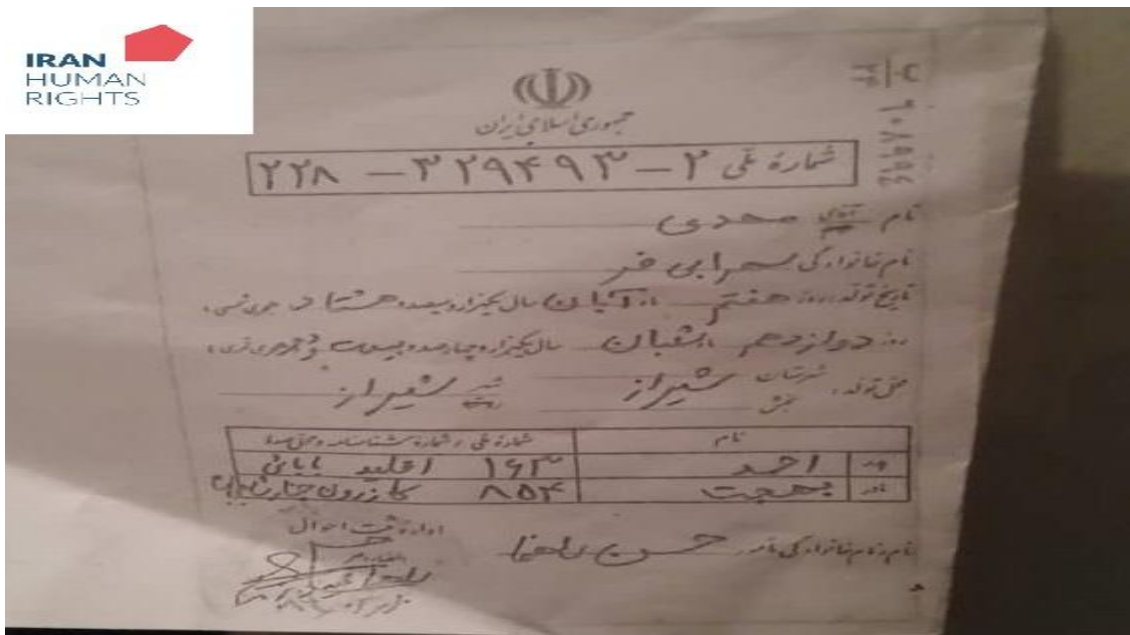 IRAN
HUMAN
RIGHTS
جمهوری اسلامی ایران
شماره ملی ۲-۳۲۹۴۹۳-۲۲۸
نام آقای مهدی
نام خانوادگی سهرابی فر
تاریخ تولد: روز هفتم آبان سال یکهزار و سیصد و هشتاد هجری شمسی،
روز دوازدهم شعبان سال یکهزار و چهارصد و بیست و هجری قمری،
محل تولد: شهرستان بخش شیراز شهر شیراز
نام شماره ملی / شماره شناسنامه و محل صدور
پدر احمد ۱۶۳ اقلید
مادر بهجت ۸۵۴ کازرون
نام و نام خانوادگی مامور حسن
اداره ثبت احوال